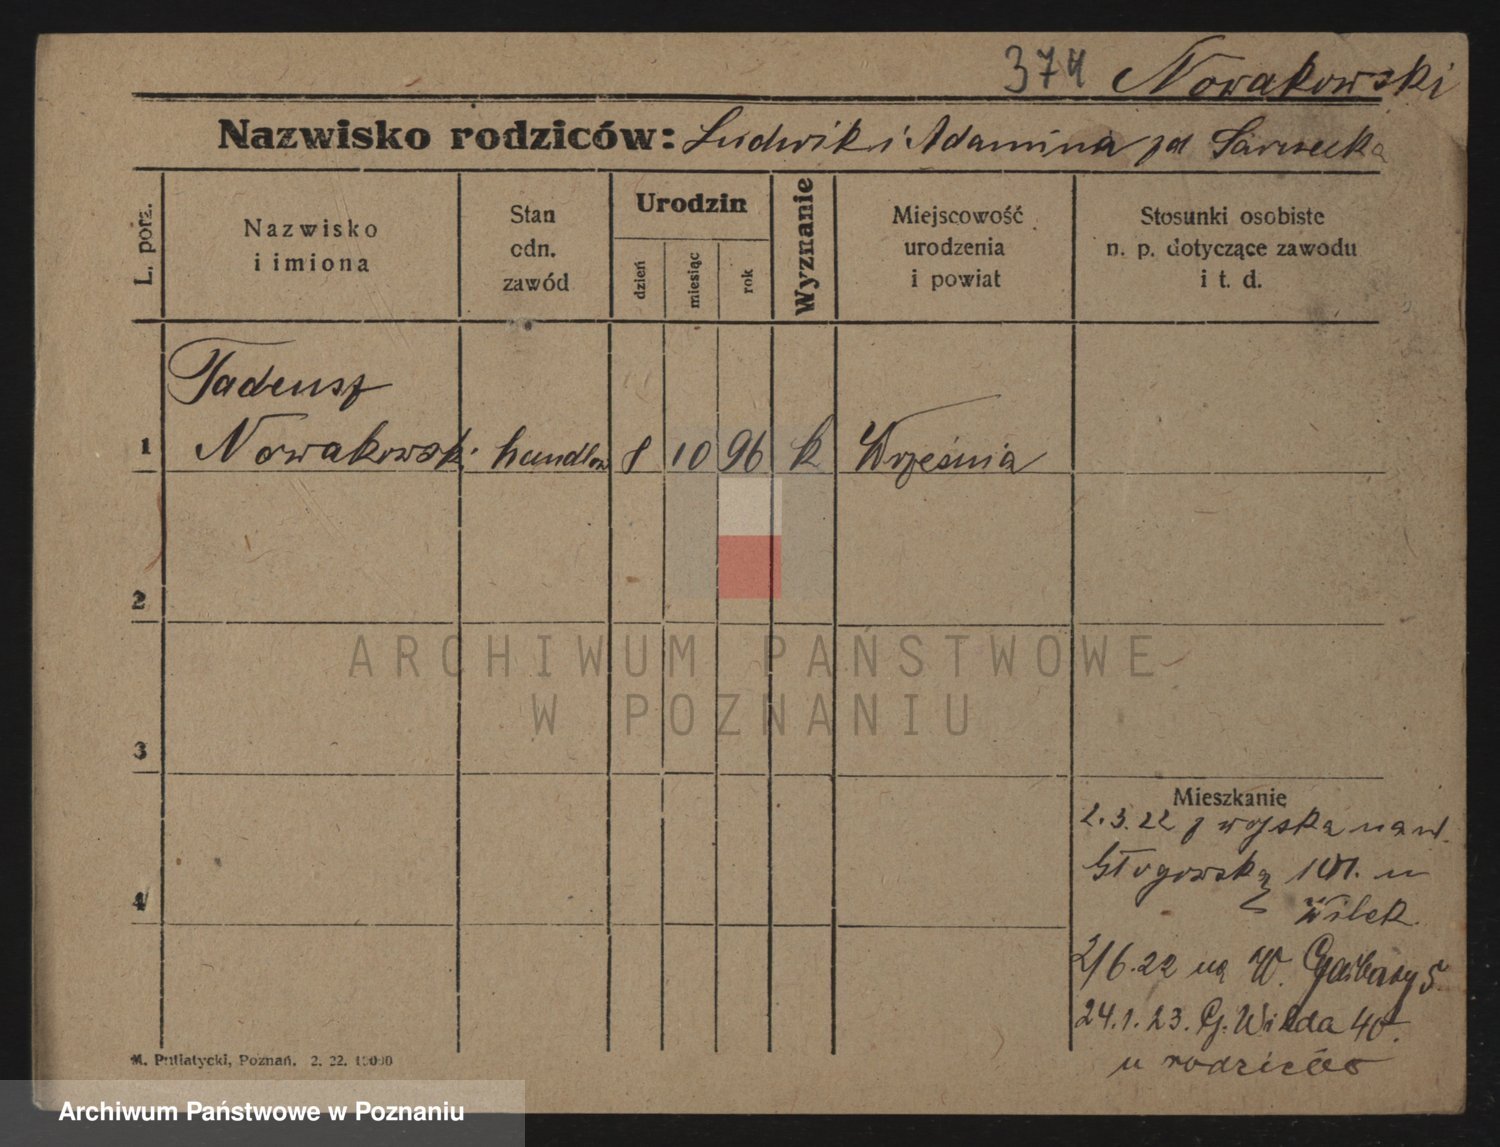 374 Nowakowski
Nazwisko rodziców: Ludwik i Adamina zd Sarnecka
L. porz.
Nazwisko
i imiona
Stan
cdn.
zawód
Urodzin
dzień
miesiąc
rok
Wyznanie
Miejscowość
urodzenia
i powiat
Stosunki osobiste
n. p. dotyczące zawodu
i t. d.
Tadeusz
1 Nowakowski handlow 8 10 96 k Września
2
3
4
Mieszkanie
2.3.22 z wojska na ul.
Głogowską 101. u
Wilek
2/6.22 na W. Garbary 5
24.1.23. G. Wilda 40.
u rodziców
M. Putiatycki, Poznań, 2. 22. 10000
ARCHIWUM PAŃSTWOWE
W POZNANIU
Archiwum Państwowe w Poznaniu